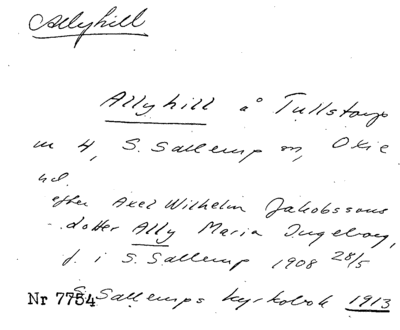 Allyhill
Allyhill å Tullstorp
nr 4, S. Sallerup sn, Oxie
hd.
efter Axel Wilhelm Jakobssons
dotter Ally Maria Ingeborg,
f. i S. Sallerup 1908 28/5
Nr 7754 S. Sallerups kyrkobok 1913